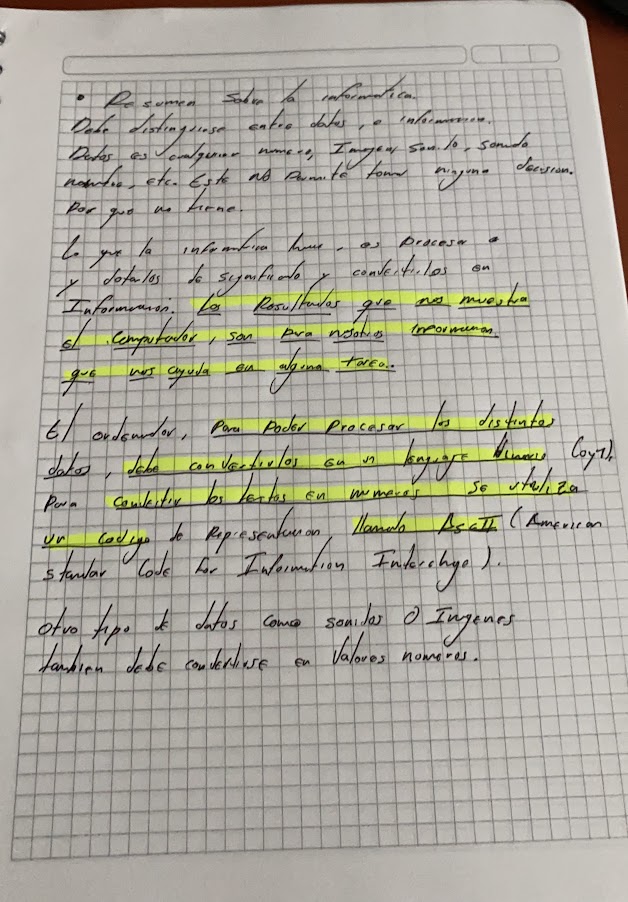 • Resumen sobre la informatica.
Debe distinguirse entre datos, e informacion.
Datos es cualquier numero, Imagen sonido, sonido
nombre, etc. Este no Permite tomar ninguna decision.
Por que no tiene.
Lo que la informatica hace, es procesar
y dotarlos de significado y convertirlos en
Informacion. Los Resultados que nos muestra
el Computador, son para nosotros informacion
que nos ayuda en alguna tarea.
El ordenador, Para Poder Procesar los distintos
datos, debe convertirlos en un lenguage Binario (0 y 1).
Para convertir los textos en numeros se utiliza
un codigo de Representacion llamado AscII (American
standar Code For Information
Otro tipo de datos como sonidos O
tambien debe convertirse en Valores numeros.